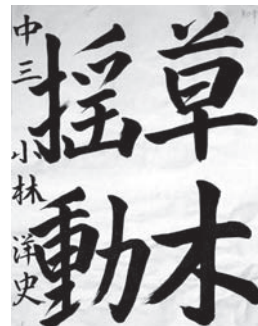 草木
揺動
中三 小林洋史